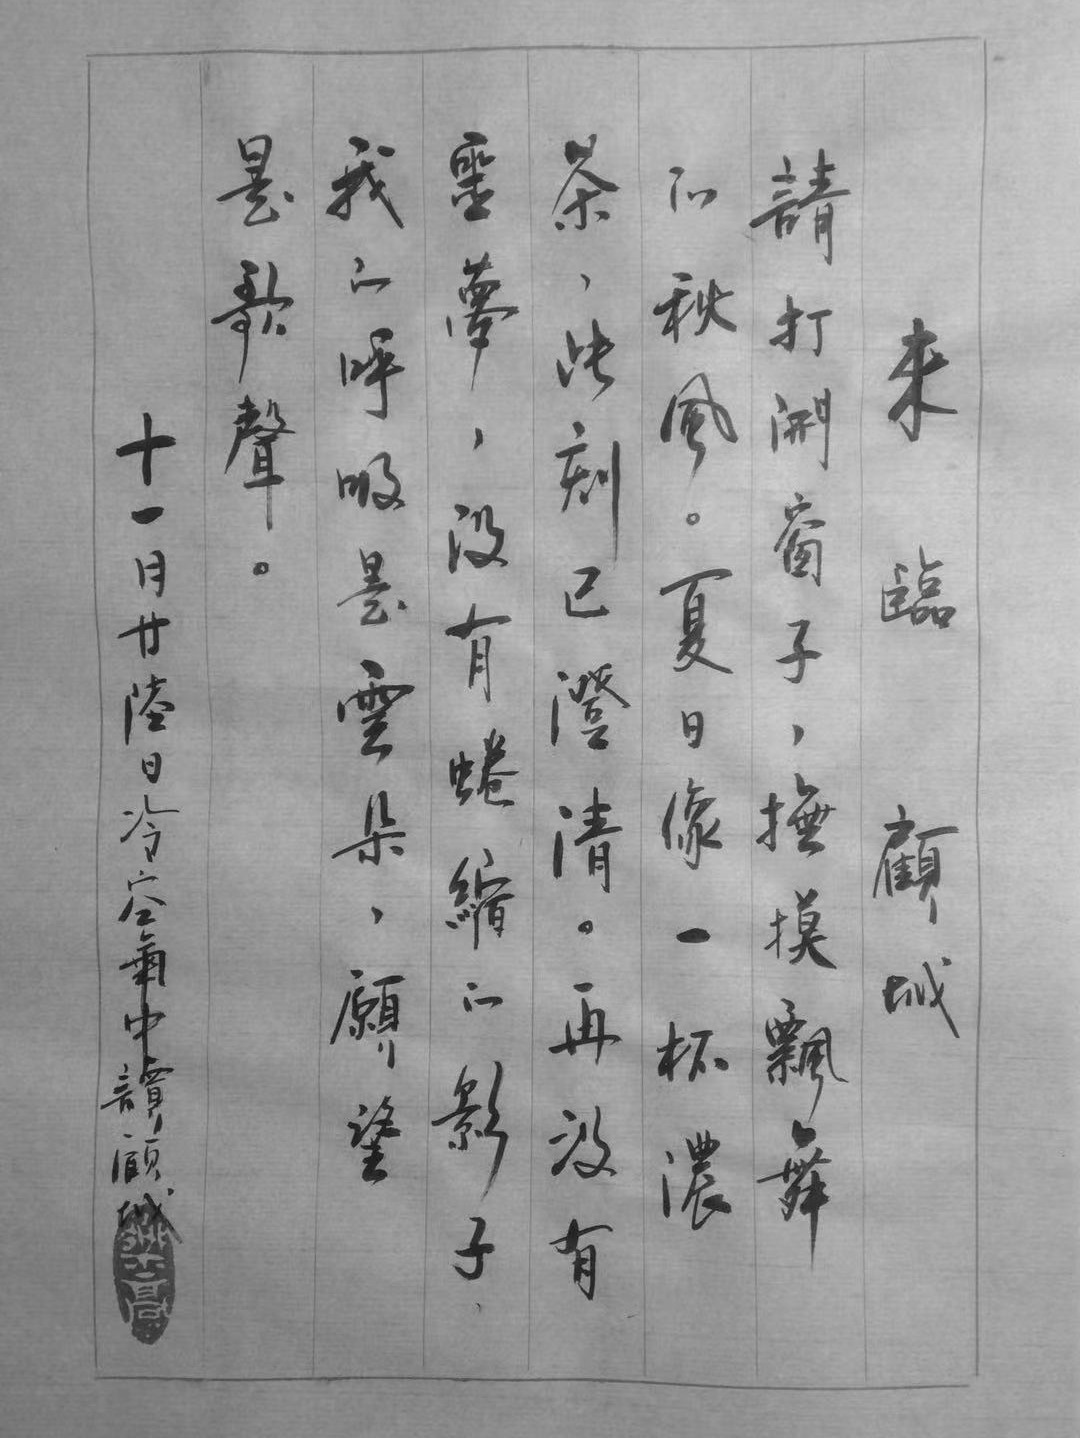 來臨 顧城
請打開窗子，撫摸飄舞
的秋風。夏日像一杯濃
茶，此刻已澄清。再沒有
噩夢，沒有蜷縮的影子，
我的呼吸是雲朵，願望
是歌聲。
十一月廿陸日冷空氣中讀顧城